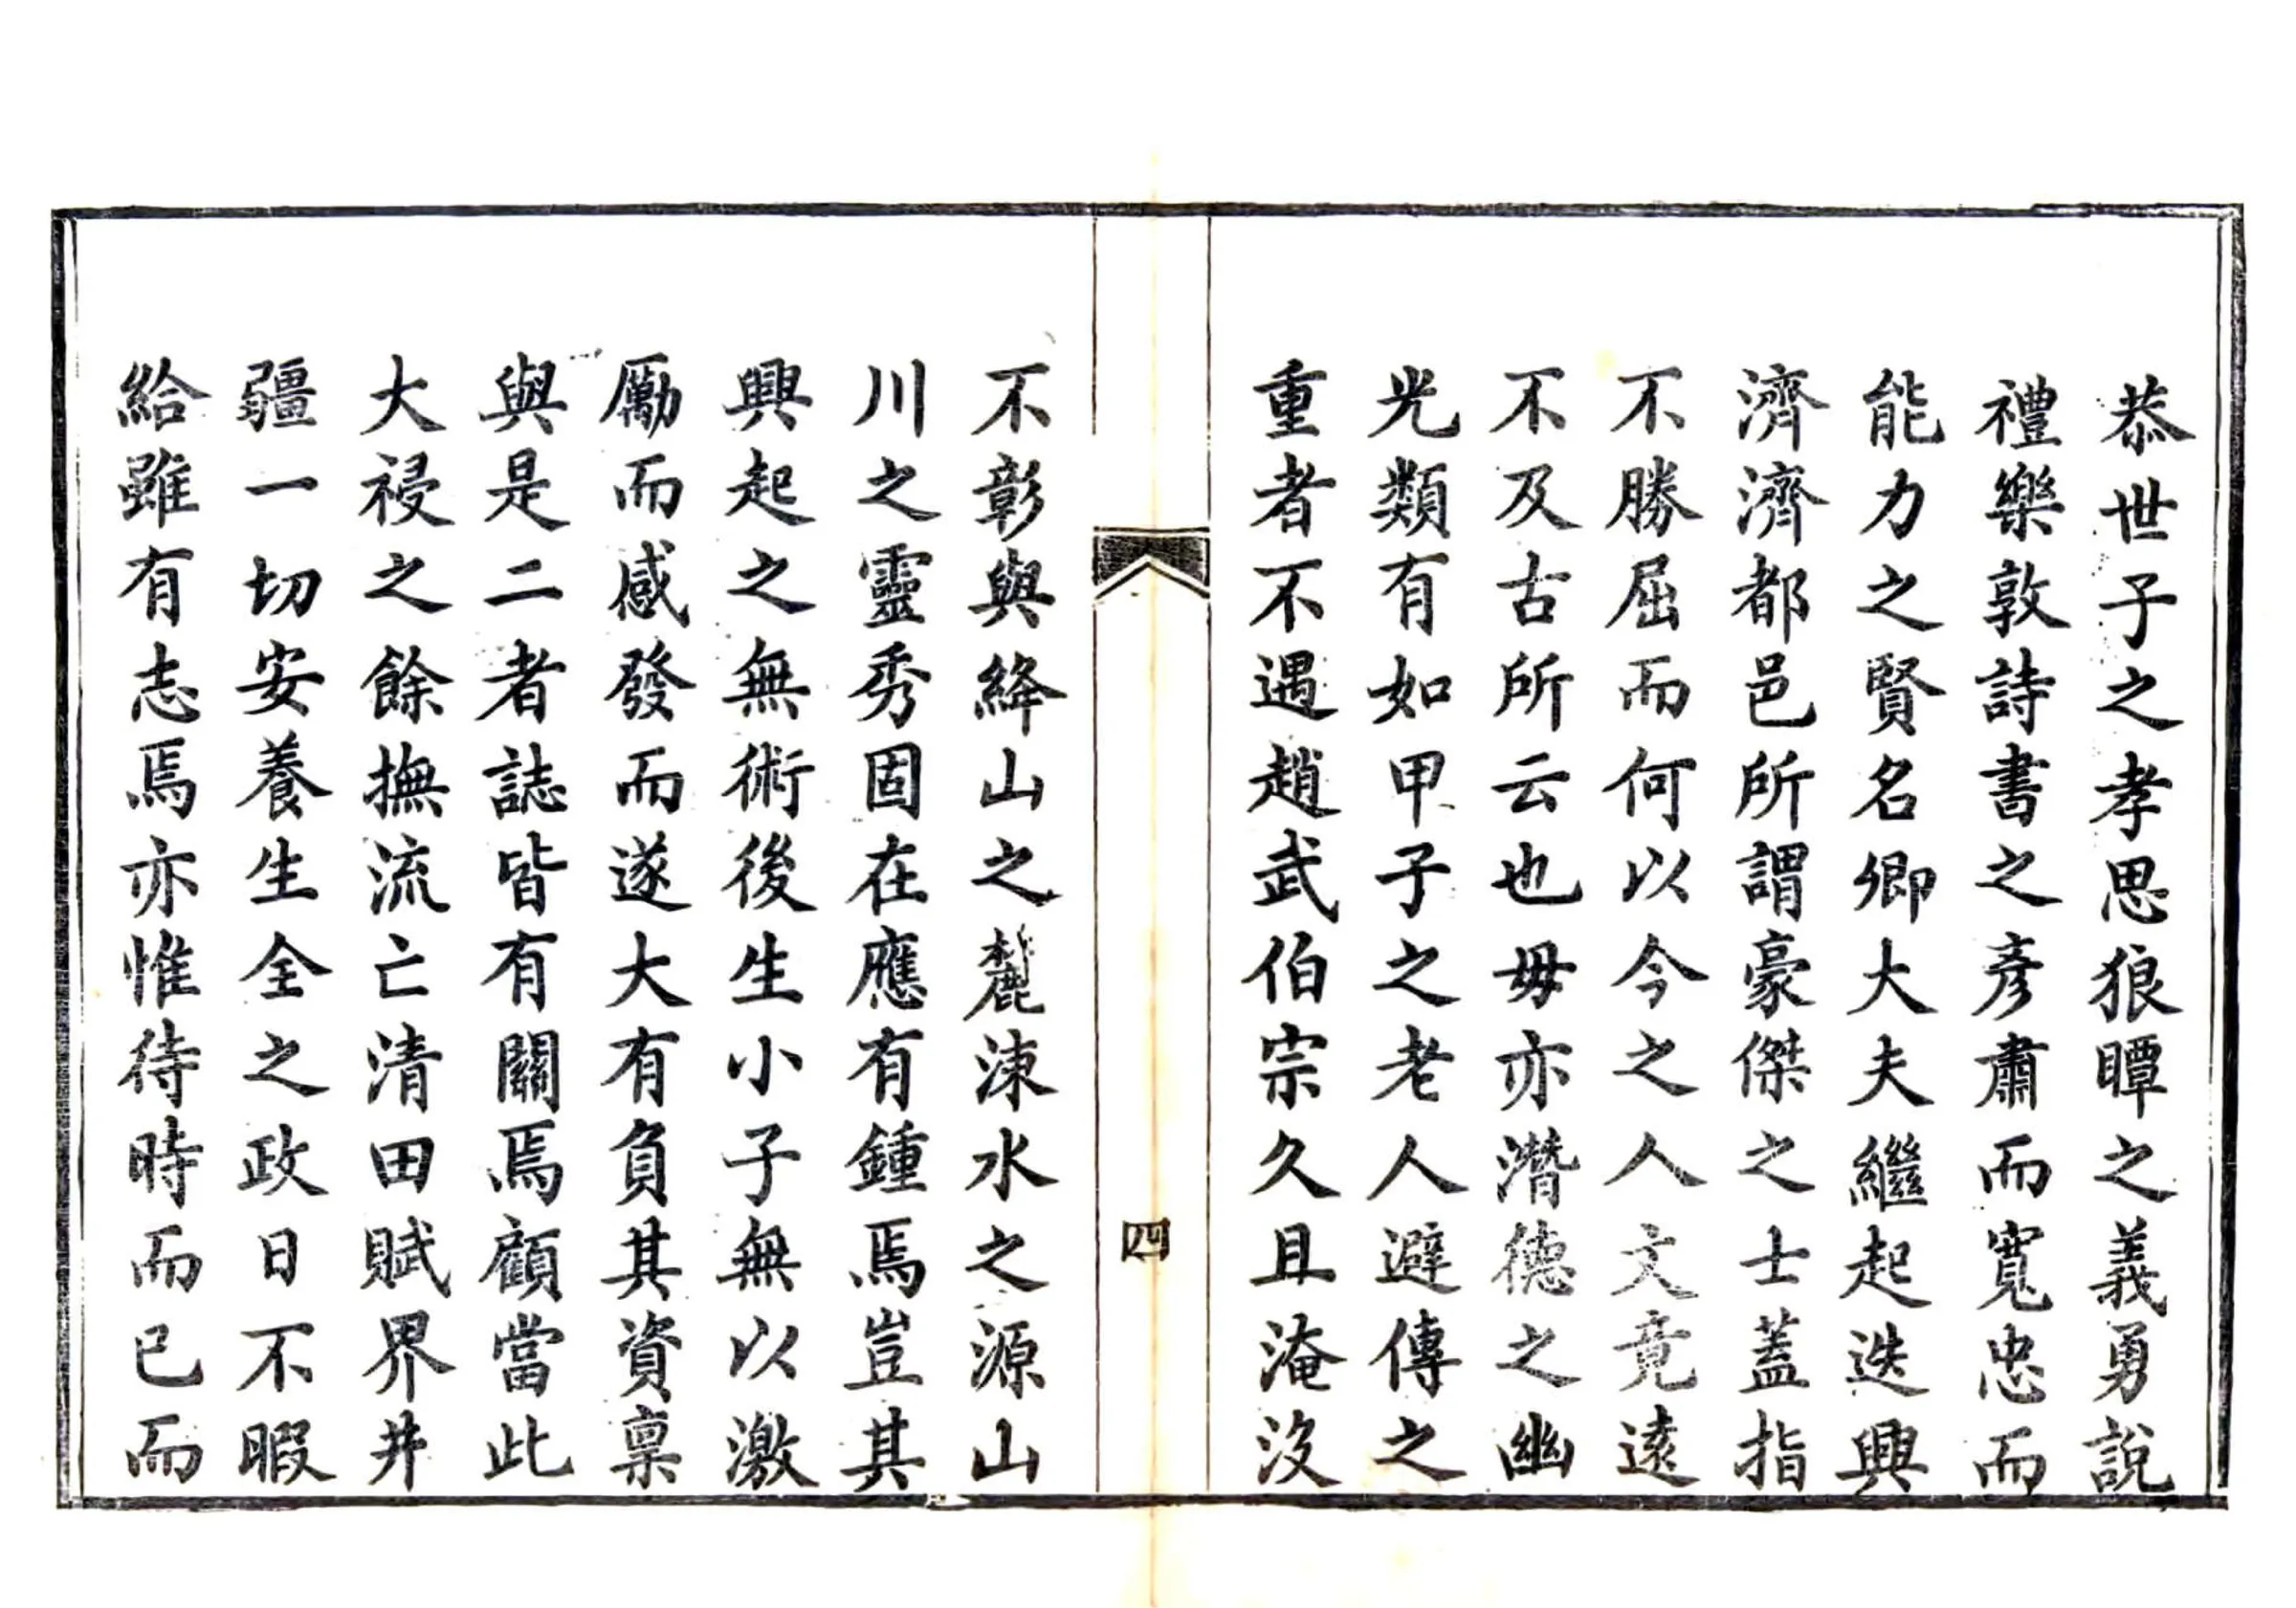 恭世子之孝思狼瞫之義勇說
禮樂敦詩書之彥肅而寬忠而
能力之賢名卿大夫繼起迭興
濟濟都邑所謂豪傑之士蓋指
不勝屈而何以今之人文竟遠
不及古所云也毋亦潛德之幽
光類有如甲子之老人避傳之
重者不遇趙武伯宗久且淹沒
四
不彰與絳山之麓涑水之源山
川之靈秀固在應有鍾焉豈其
興起之無術後生小子無以激
勵而感發而遂大有負其資稟
與是二者誌皆有關焉顧當此
大祲之餘撫流亡清田賦界井
疆一切安養生全之政日不暇
給雖有志焉亦惟待時而已而